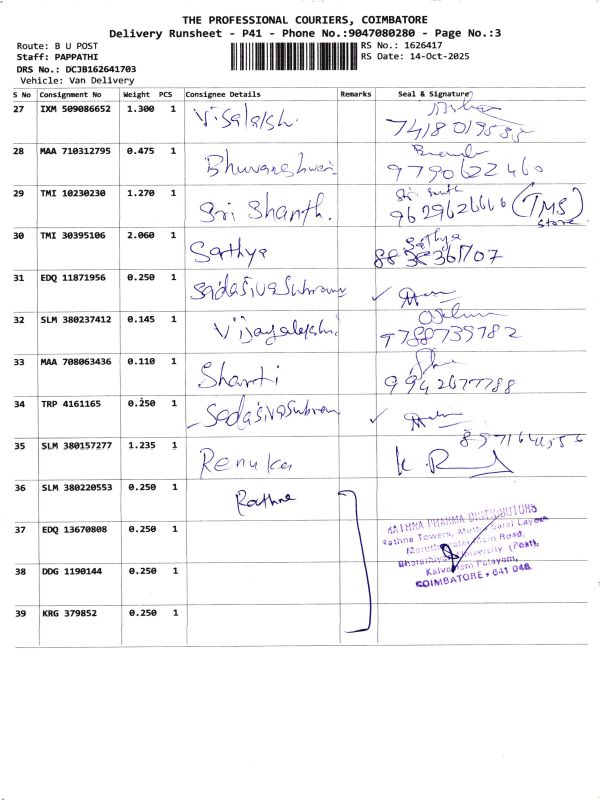 THE PROFESSIONAL COURIERS, COIMBATORE
Delivery Runsheet - P41 - Phone No.:9047080280 - Page No.:3
Route: B U POST
RS No.: 1626417
Staff: PAPPATHI
RS Date: 14-Oct-2025
DRS No.: DCJB162641703
Vehicle: Van Delivery
S No Consignment No Weight PCS Consignee Details Remarks Seal & Signature
27 IXM 509086652 1.300 1 Visalakshi
28 MAA 710312795 0.475 1 Bhuvaneshwari 9790622460
29 TMI 10230230 1.270 1 Sri Shanth. Sri Santh
9629626666 (TMS Store)
30 TMI 30395106 2.060 1 Sathya Sathya
31 EDQ 11871956 0.250 1 Sadasiva Subramani ✓
32 SLM 380237412 0.145 1 Vijayalakshmi 9788739782
33 MAA 708063436 0.110 1 Shanti 9942677788
34 TRP 4161165 0.250 1 Sadasivasubram ✓
35 SLM 380157277 1.235 1 Renuka K. R
36 SLM 380220553 0.250 1 Rathna
37 EDQ 13670808 0.250 1
RATHNA PHARMA DISTRIBUTORS
Rathna Towers, Muthu Sarai Layout
Maruthamalai Main Road,
Bharathiyar University (Post),
Kalveeram Palayam,
COIMBATORE - 641 046.
38 DDG 1190144 0.250 1
39 KRG 379852 0.250 1